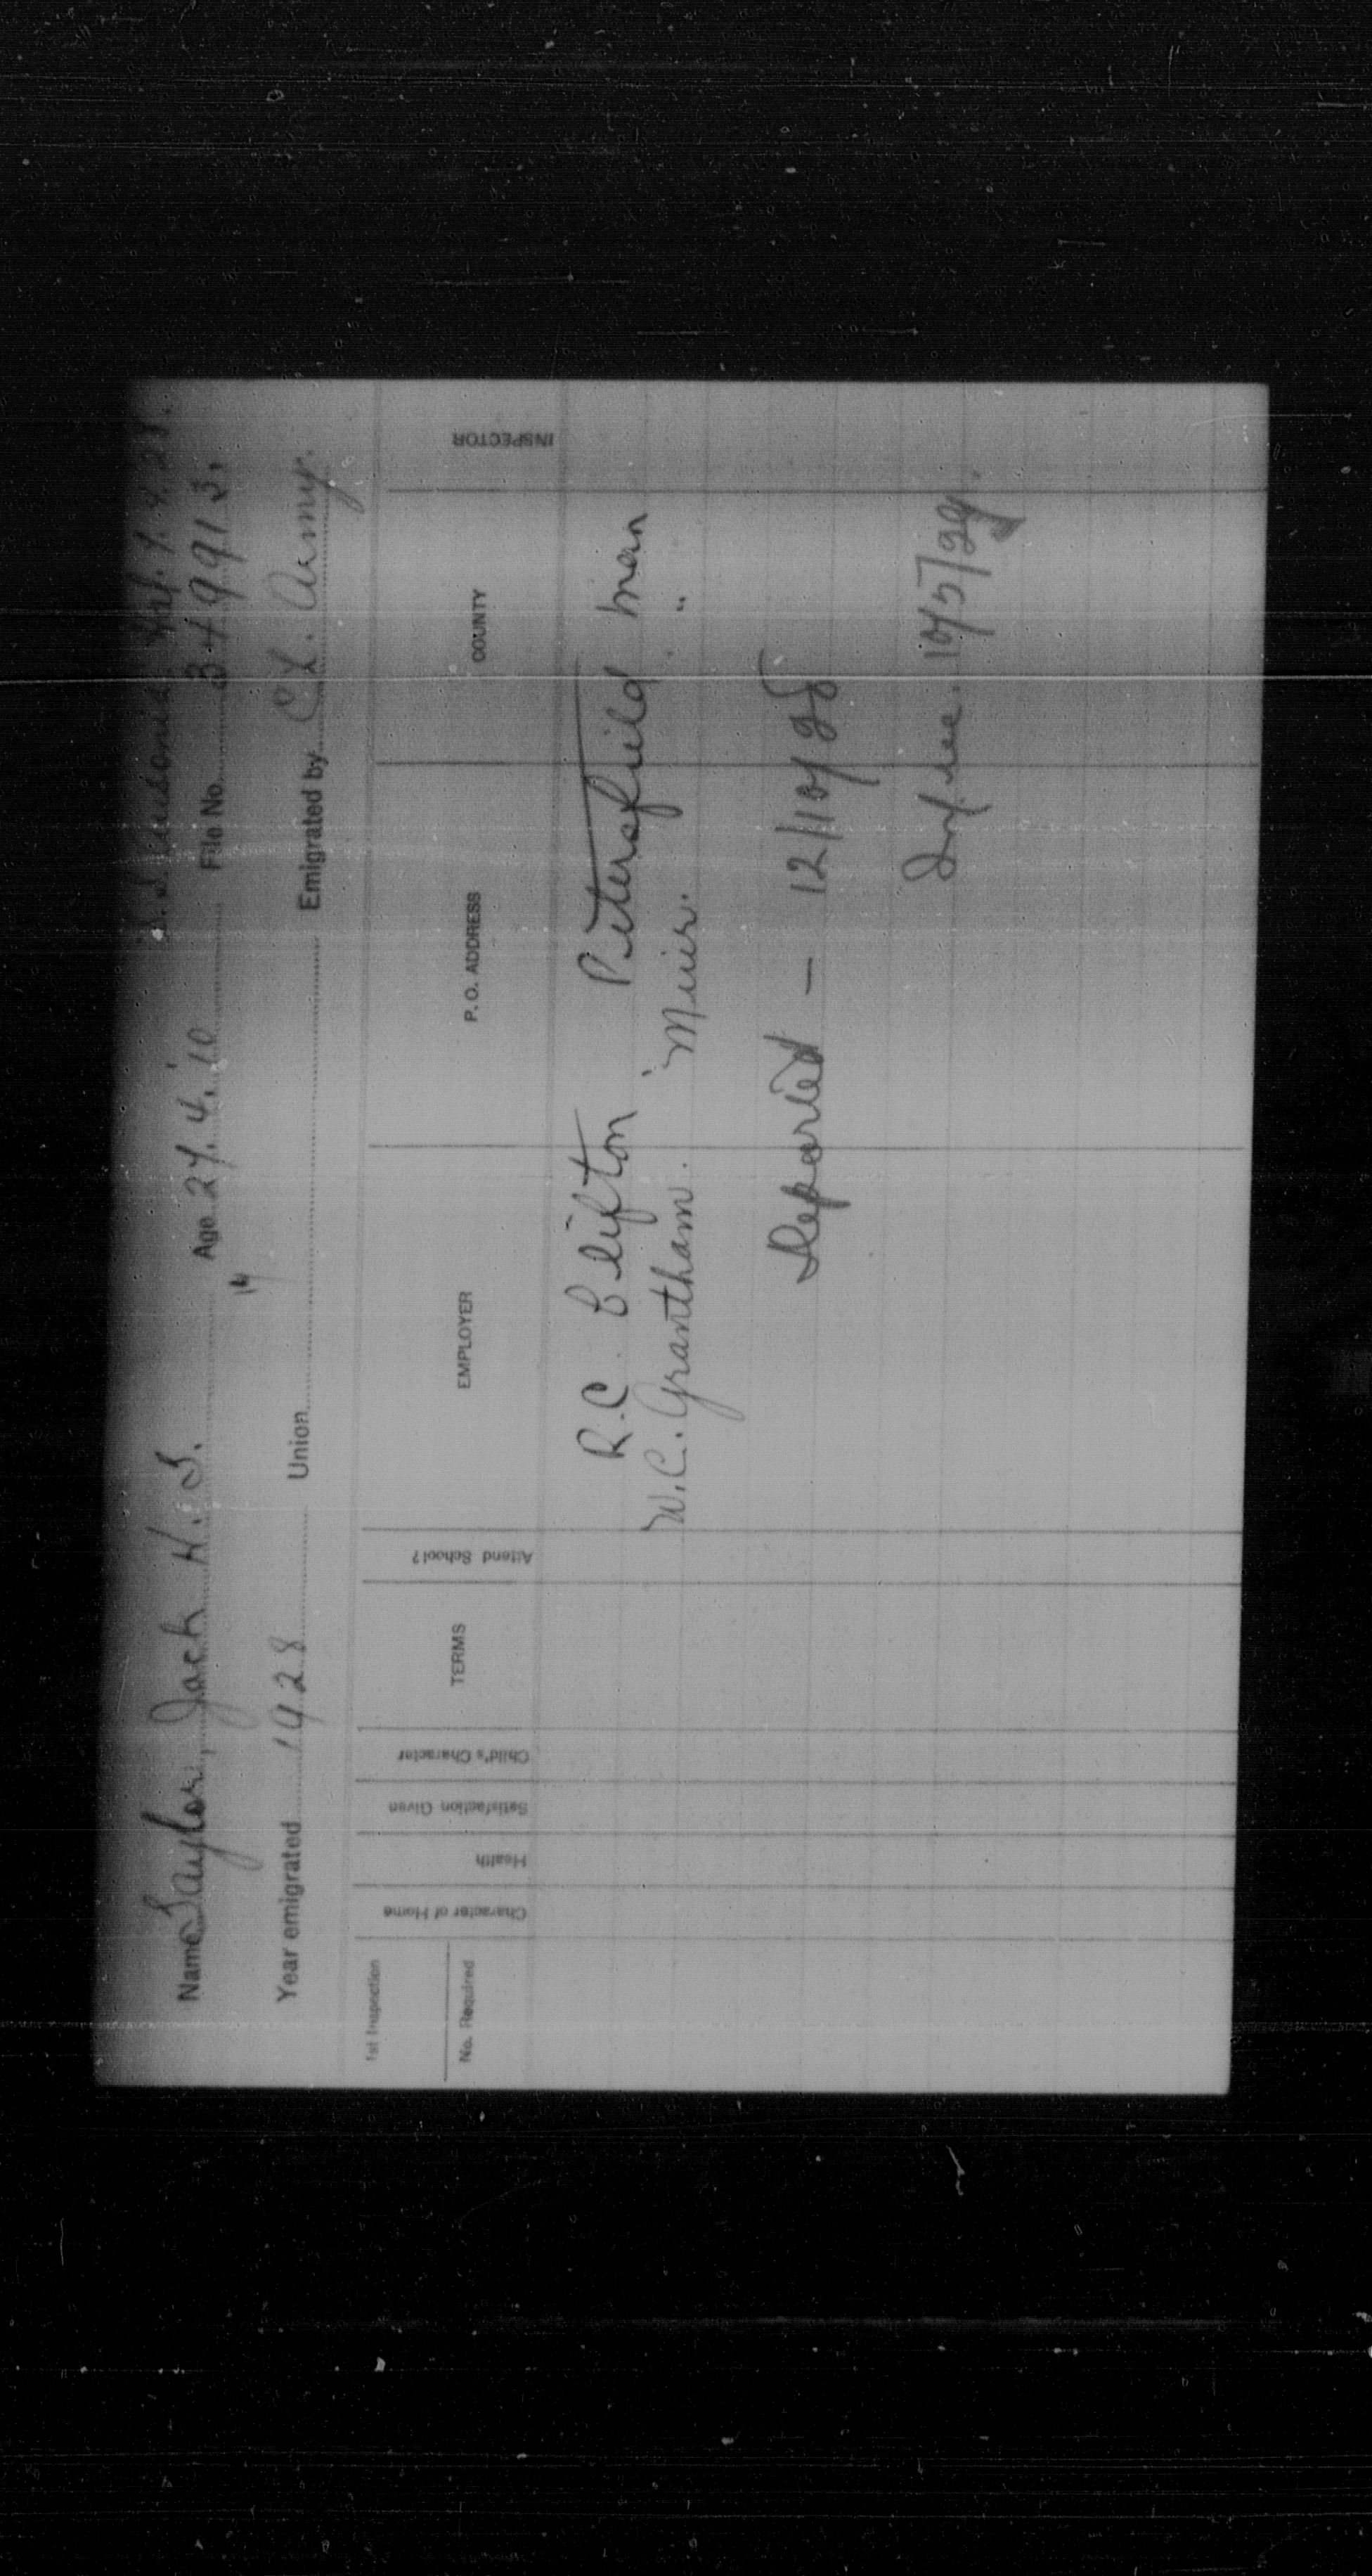 S.S. Ausonia Hfx. 7.4.28.
Name Taylor, Jack H. S. Age 27.4.'10 File No. 34 9913.
14
Year emigrated 1928 Union Emigrated by Ch. Army.
1st Inspection
No. Required
Character of Home
Health
Satisfaction Given
Child's Character
TERMS
Attend School?
EMPLOYER
P. O. ADDRESS
COUNTY
INSPECTOR
R.C Clifton Petersfield man
W.C. Grantham. Muir. "
Deported — 12/10/28
10/5/29.